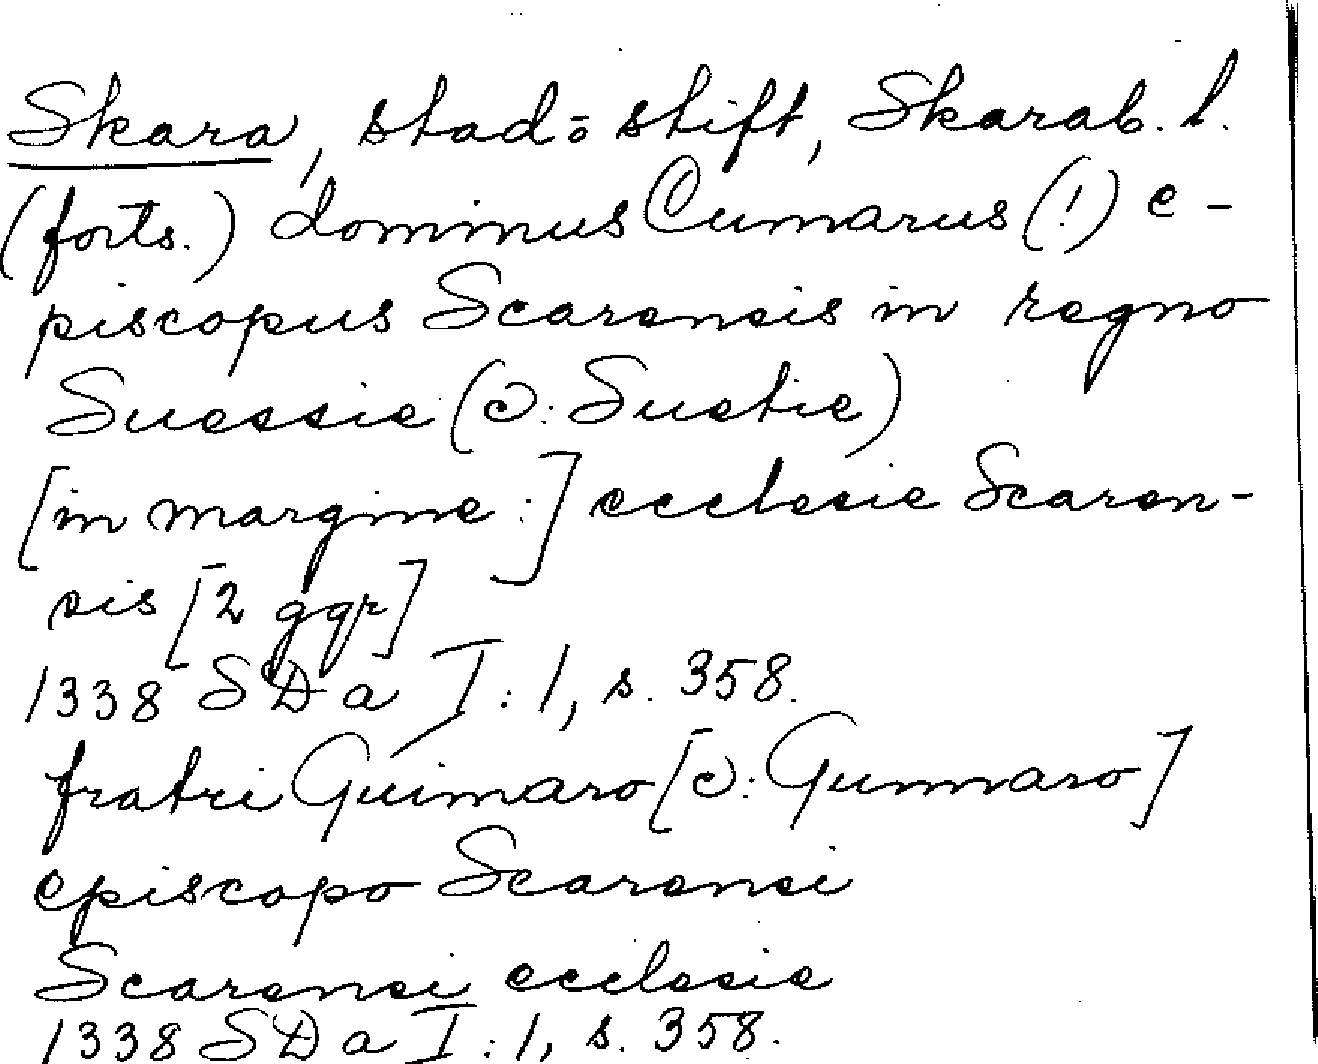 Skara, stad o stift, Skarab. l.
(forts.) dominus Cumarus (!) e-
piscopus Scarensis in regno
Suessie (ɔ: Suetie)
[in margine:] ecclesie Scaren-
sis [2 ggr]
1338 SD a I:1, s. 358.
fratri Guimaro [ɔ: Gunnaro]
episcopo Scarensi
Scarensi ecclesie
1338 SD a I:1, s. 358.